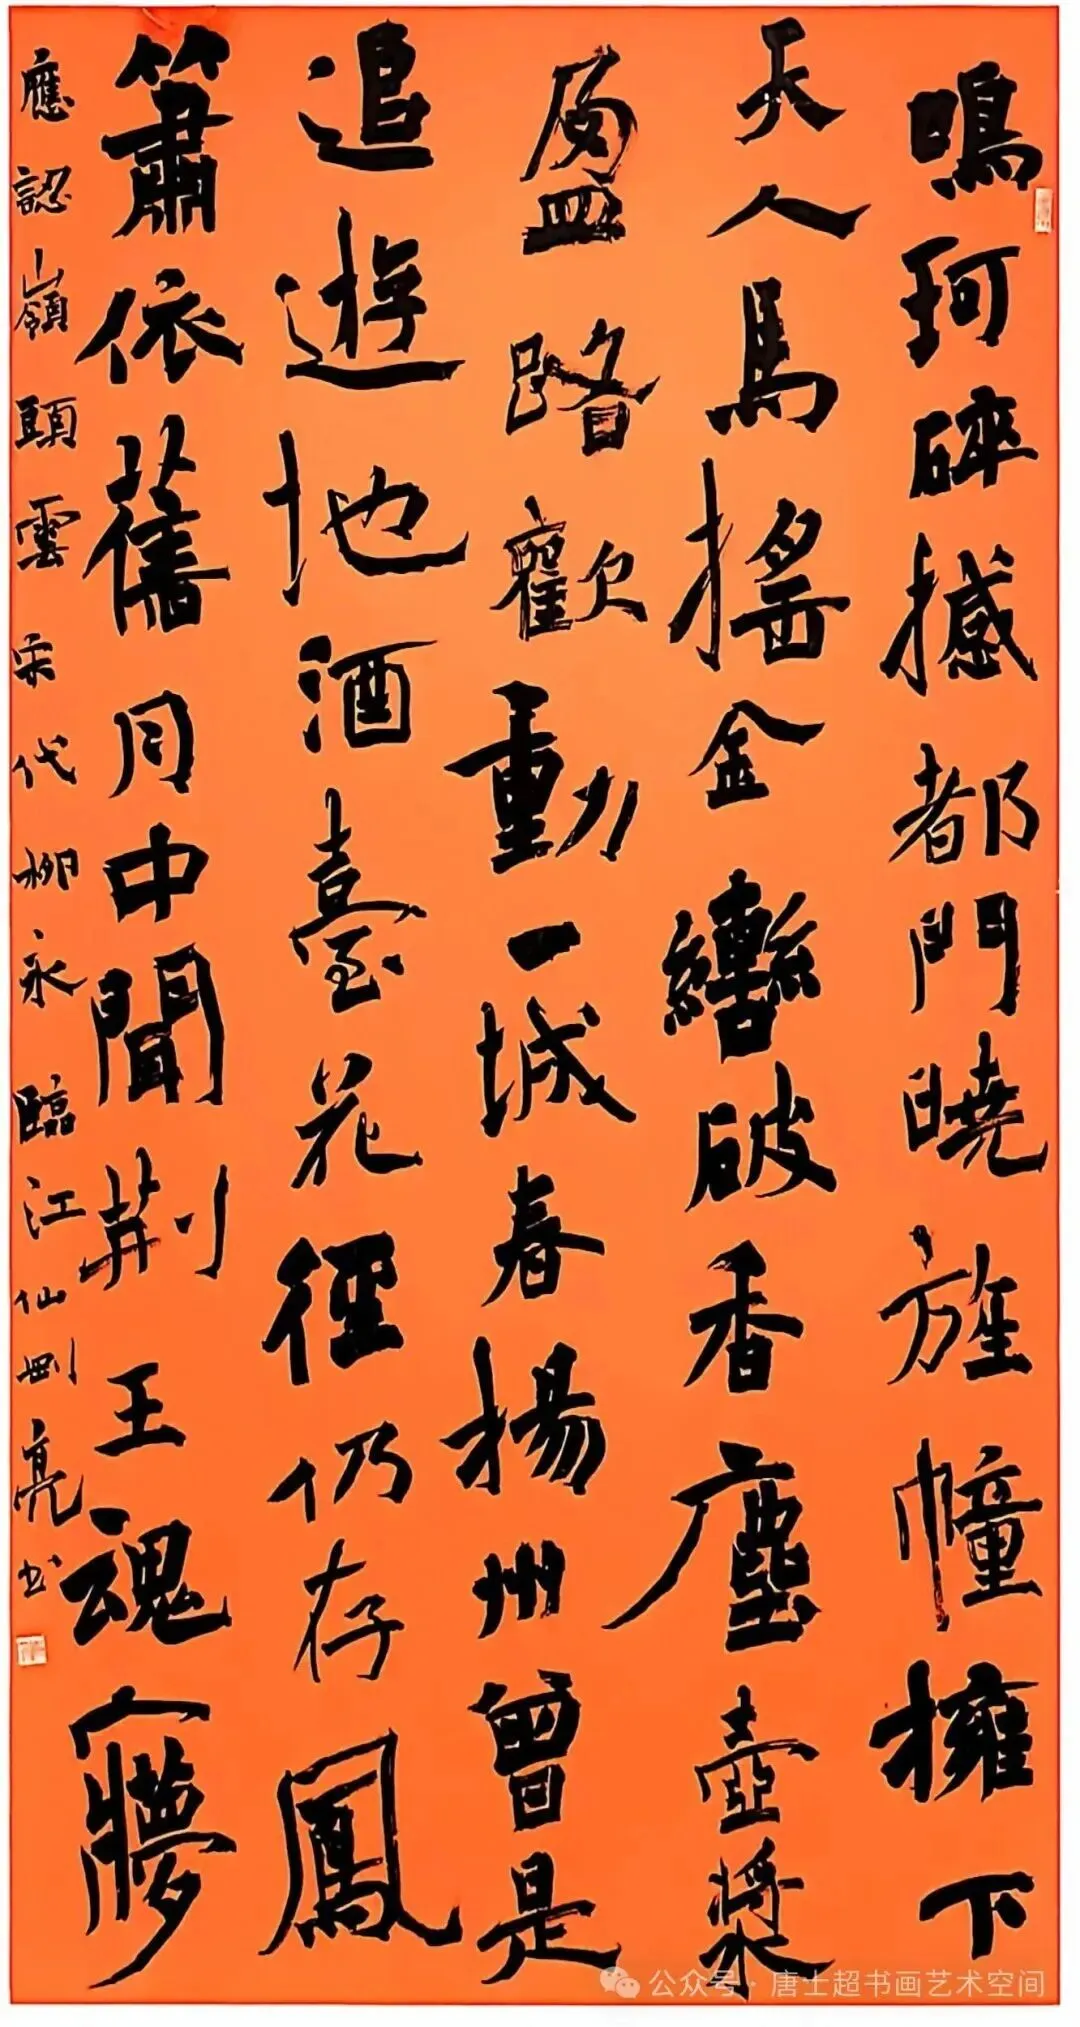 鳴珂碎撼都門曉旌幢擁下
天人馬搖金轡破香塵壺漿
盈路歡動一城春揚州曾是
追遊地酒臺花徑仍存鳳
簫依舊月中聞荊王魂夢
應認嶺頭雲宋代柳永臨江仙剛亮书
公众号·唐士超书画艺术空间